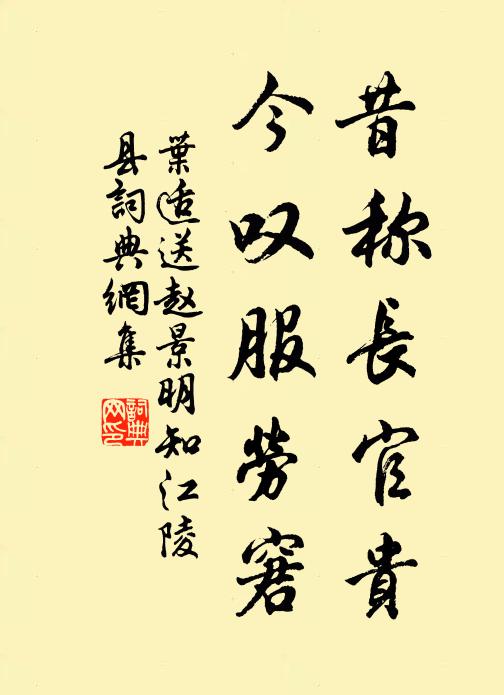 昔称長官貴
今叹服勞窘
葉适送赵景明知江陵
县詞典網集
詞典
网印